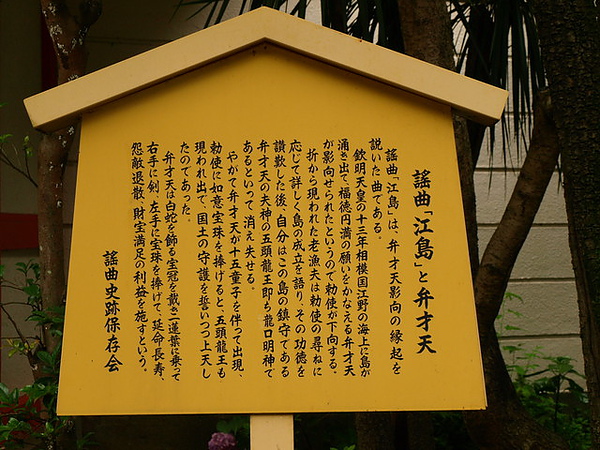 謡曲「江島」と弁才天
謡曲「江島」は、弁才天影向の縁起を
説いた曲である。
欽明天皇の十三年相模国江野の海上に島が
涌き出て、福徳円満の願いをかなえる弁才天
が影向せられたというので勅使が下向する。
折から現われた老漁夫は勅使の尋ねに
応じて詳しく島の成立を語り、その功徳を
讃歎した後、自分はこの島の鎮守である
弁才天の夫神の五頭龍王即ち龍口明神で
あるといって消え失せる。
やがて弁才天が十五童子を伴って出現、
勅使に如意宝珠を捧げると、五頭龍王も
現われ出て、国土の守護を誓いつつ上天し
たのであった。
弁才天は白蛇を飾る宝冠を戴き、蓮葉に乗って
右手に剣、左手に宝珠を捧げて、延命長寿、
怨敵退散、財宝満足の利益を施すという。
謡曲史跡保存会